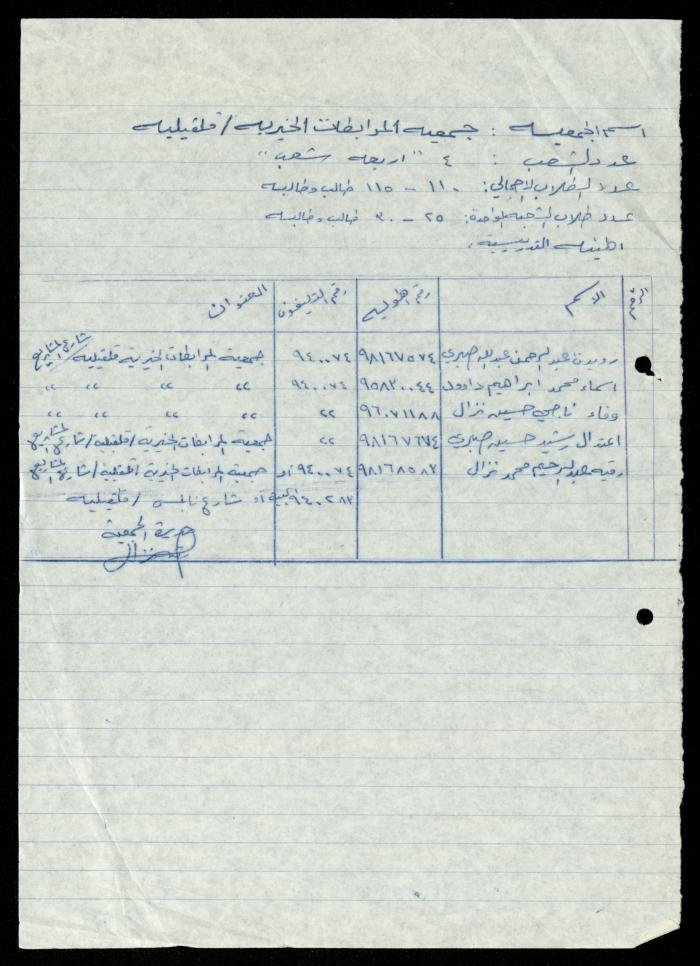 اسم الجمعيه : جمعيه المرابطات الخيريه / قلقيليه
عدد الشعب : ٤ "اربعه شعب"
عدد الطلاب الاجمالي : ١١٠ - ١١٥ طالب وطالبه
عدد طلاب الشعبه الواحدة : ٢٥ - ٣٠ طالب وطالبه
الهيئه التدريسية .
الرقم الاسم رقم الهويه رقم التليفون العنوان
عبد الرحمن عبدالله صبري ٩٨١٦٧٥٧٤ ٩٤٠٠٧٤ جمعية المرابطات الخيرية قلقيليه /
اسماء محمد ابراهيم داوود ٩٥٨٣٠٠٤٤ ٩٤٠٠٧٤ ،، ،، ،، ،،
وفاء ناجي حسين نزال ٩٦٠٧١١٨٨ ،، ،، ،، ،، ،،
اعتدال رشيد حسين صبري ٩٨١٦٧٦٧٤ ،، جمعية المرابطات الخيرية / قلقيليه /
رقيه عبد الرحيم محمد نزال ٩٨١٦٨٥٨٢ ٩٤٠٠٧٤ او جمعية المرابطات الخيرية / قلقيليه /
٩٤٠٢٨٣ او شارع نابلس / قلقيليه
مديرة الجمعية